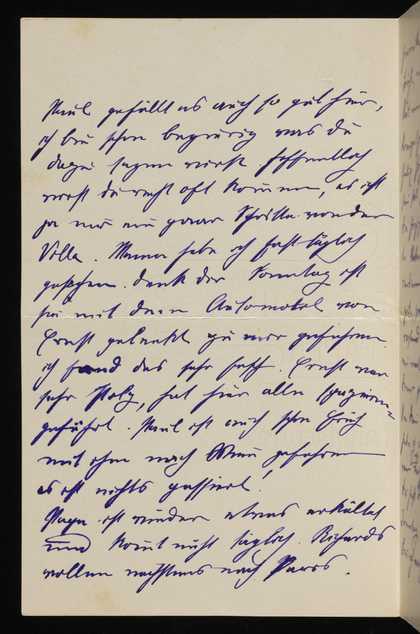 Paul gefällt es auch so gut hier,
ich bin schon begierig was du
dazu sagen wirst hoffentlich
wirst du recht oft kommen, es ist
ja nur ein paar Schritte von der
Villa. Mama habe ich fast täglich
gesehen. Sonntag ist
sie mit dem Automobil von
Ernst gelenkt zu mir gefahren
ich fand das sehr fesch. Ernst war
sehr stolz, hat hier alle spazieren=
geführt. Paul ist auch schon früh
mit ihm nach Wien gefahren
es ist nichts passiert!
Papa ist wieder etwas erkältet
und kommt nicht täglich. Richards
wollen nächstens nach Paris.